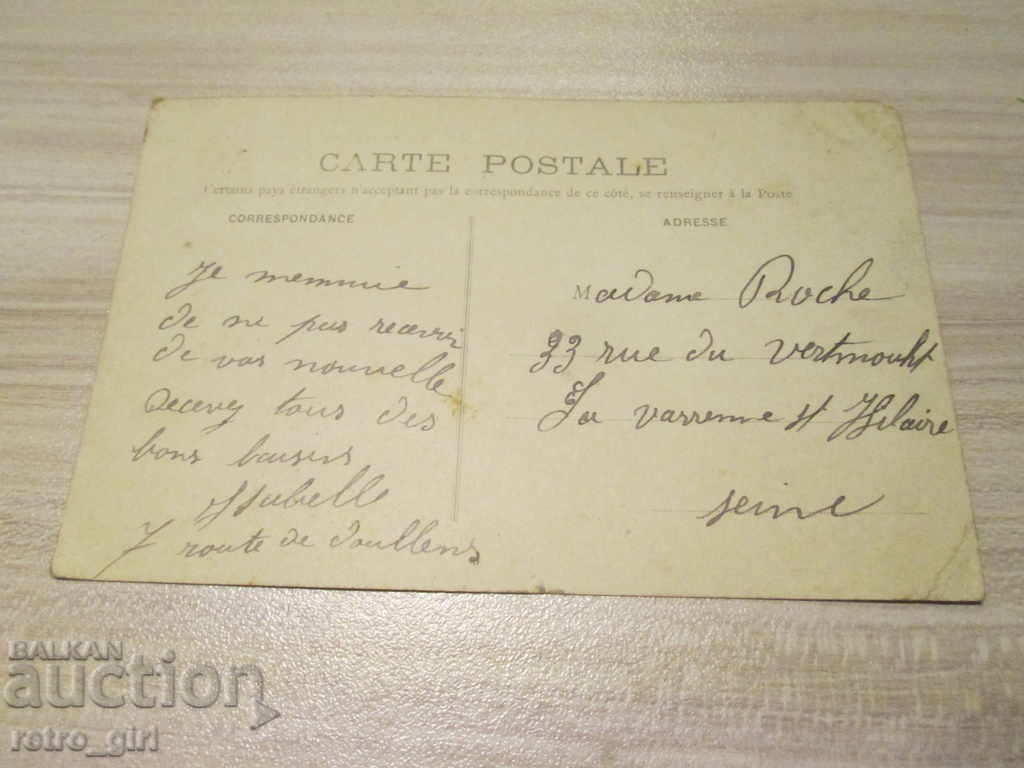 CARTE POSTALE
Certains pays étrangers n'acceptant pas la correspondance de ce côté, se renseigner à la Poste
CORRESPONDANCE
Je mennuie
de ne pas recevoir
de vos nouvelle
recevez tous des
bons baisers
Isabelle
7 route de doullens
ADRESSE
Madame Roche
33 rue du
La varrenne st Hilaire
seine
BALKAN
auction
retro_girl